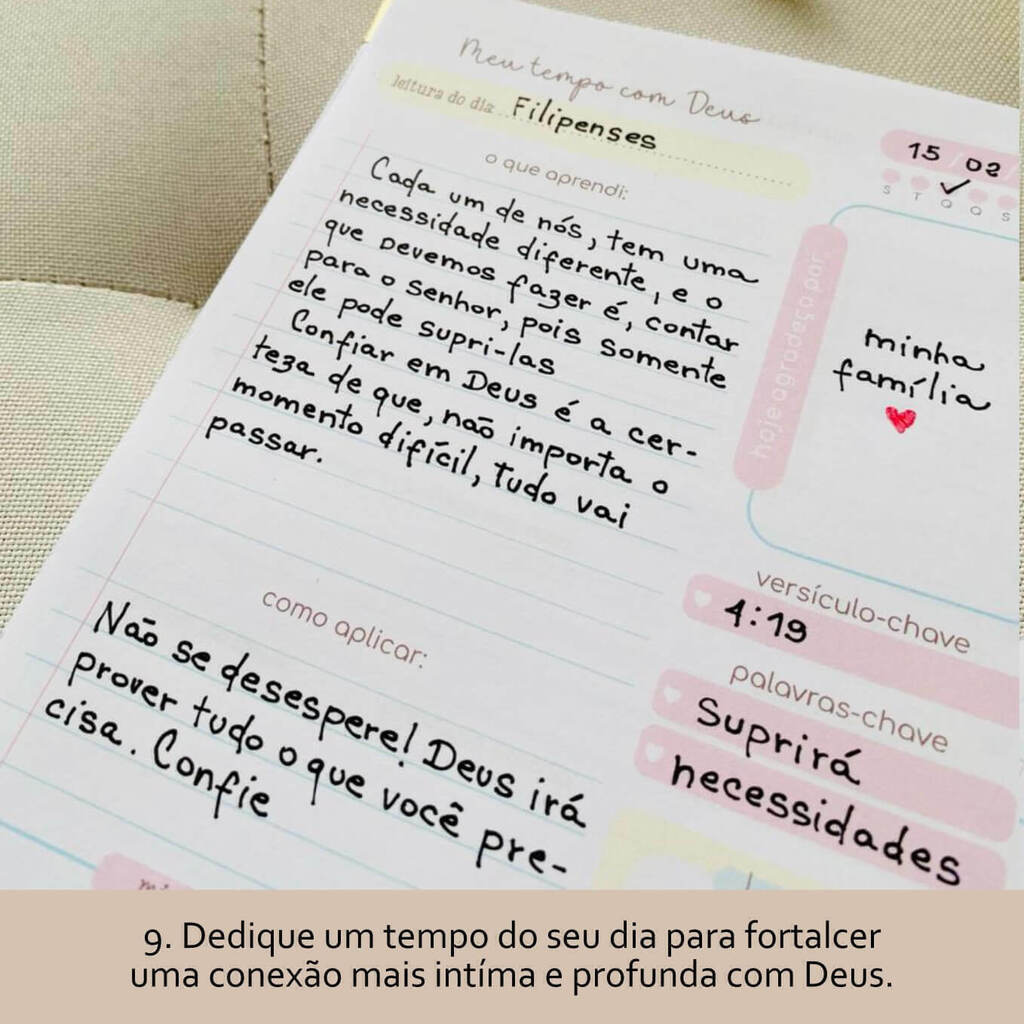 Meu tempo com Deus
leitura do dia Filipenses
15 02
S T Q Q S
o que aprendi:
Cada um de nós, tem uma
necessidade diferente, e o
que devemos fazer é, contar
para o senhor, pois somente
ele pode supri-las
Confiar em Deus é a cer-
teza de que, não importa o
momento difícil, tudo vai
passar.
hoje agradeço por:
minha
família
como aplicar:
Não se desespere! Deus irá
prover tudo o que você pre-
cisa. Confie
versículo-chave
4:19
palavras-chave
Suprirá
necessidades
9. Dedique um tempo do seu dia para fortalcer
uma conexão mais intíma e profunda com Deus.